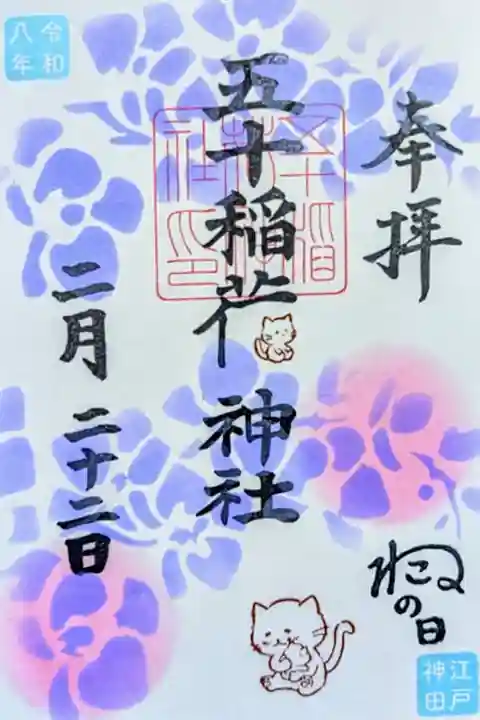 奉拝
五十稲荷神社
二月二十二日
ねこの日
令和
八年
江戸
神田